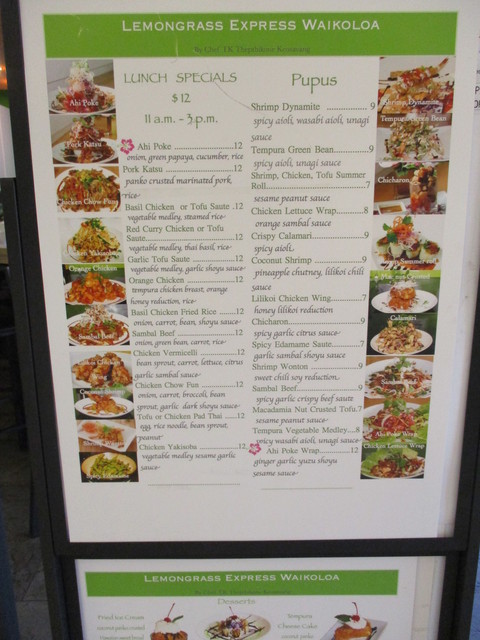 LEMONGRASS EXPRESS WAIKOLOA
By Chef TK
LUNCH SPECIALS
$12
11 a.m. - 3.p.m.
Ahi Poke ..................12
onion, green papaya, cucumber, rice
Pork Katsu ...............12
panko crusted marinated pork,
rice
Basil Chicken or Tofu Saute .12
vegetable medley, steamed rice
Red Curry Chicken or Tofu
Saute........................12
vegetable medley, thai basil, rice
Garlic Tofu Saute ............12
vegetable medley, garlic shoyu sauce
Orange Chicken ..............12
tempura chicken breast, orange
honey reduction, rice
Basil Chicken Fried Rice .......12
onion, carrot, bean, shoyu sauce
Sambal Beef ..................12
onion, green bean, carrot, rice
Chicken Vermicelli ............12
bean sprout, carrot, lettuce, citrus
garlic sambal sauce
Chicken Chow Fun ............12
onion, carrot, broccoli, bean
sprout, garlic dark shoyu sauce
Tofu or Chicken Pad Thai ....12
egg, rice noodle, bean sprout,
peanut
Chicken Yakisoba .............12
vegetable medley sesame garlic
sauce
Pupus
Shrimp Dynamite ............... 9
spicy aioli, wasabi aioli, unagi
sauce
Tempura Green Bean..........9
spicy aioli, unagi sauce
Shrimp, Chicken, Tofu Summer
Roll..............................7
sesame peanut sauce
Chicken Lettuce Wrap........8
orange sambal sauce
Crispy Calamari................9
spicy aioli
Coconut Shrimp ...............9
pineapple chutney, lilikoi chili
sauce
Lilikoi Chicken Wing.........7
honey lilikoi reduction
Chicharon.......................9
spicy garlic citrus sauce
Spicy Edamame Saute........7
garlic sambal shoyu sauce
Shrimp Wonton ...............9
sweet chili soy reduction
Sambal Beef.....................9
spicy garlic crispy beef saute
Macadamia Nut Crusted Tofu.7
sesame peanut sauce
Tempura Vegetable Medley....8
spicy wasabi aioli, unagi sauce
Ahi Poke Wrap..............12
ginger garlic yuzu shoyu
sesame sauce
Ahi Poke
Pork Katsu
Chicken Chow Fun
Chicken Yakisoba
Orange Chicken
Shrimp Dynamite
Tempura Green Bean
Chicharon
Summer Roll
Calamari
Ahi Poke Wrap
Chicken Lettuce Wrap
LEMONGRASS EXPRESS WAIKOLOA
Desserts
Fried Ice Cream
Tempura
Cheese Cake